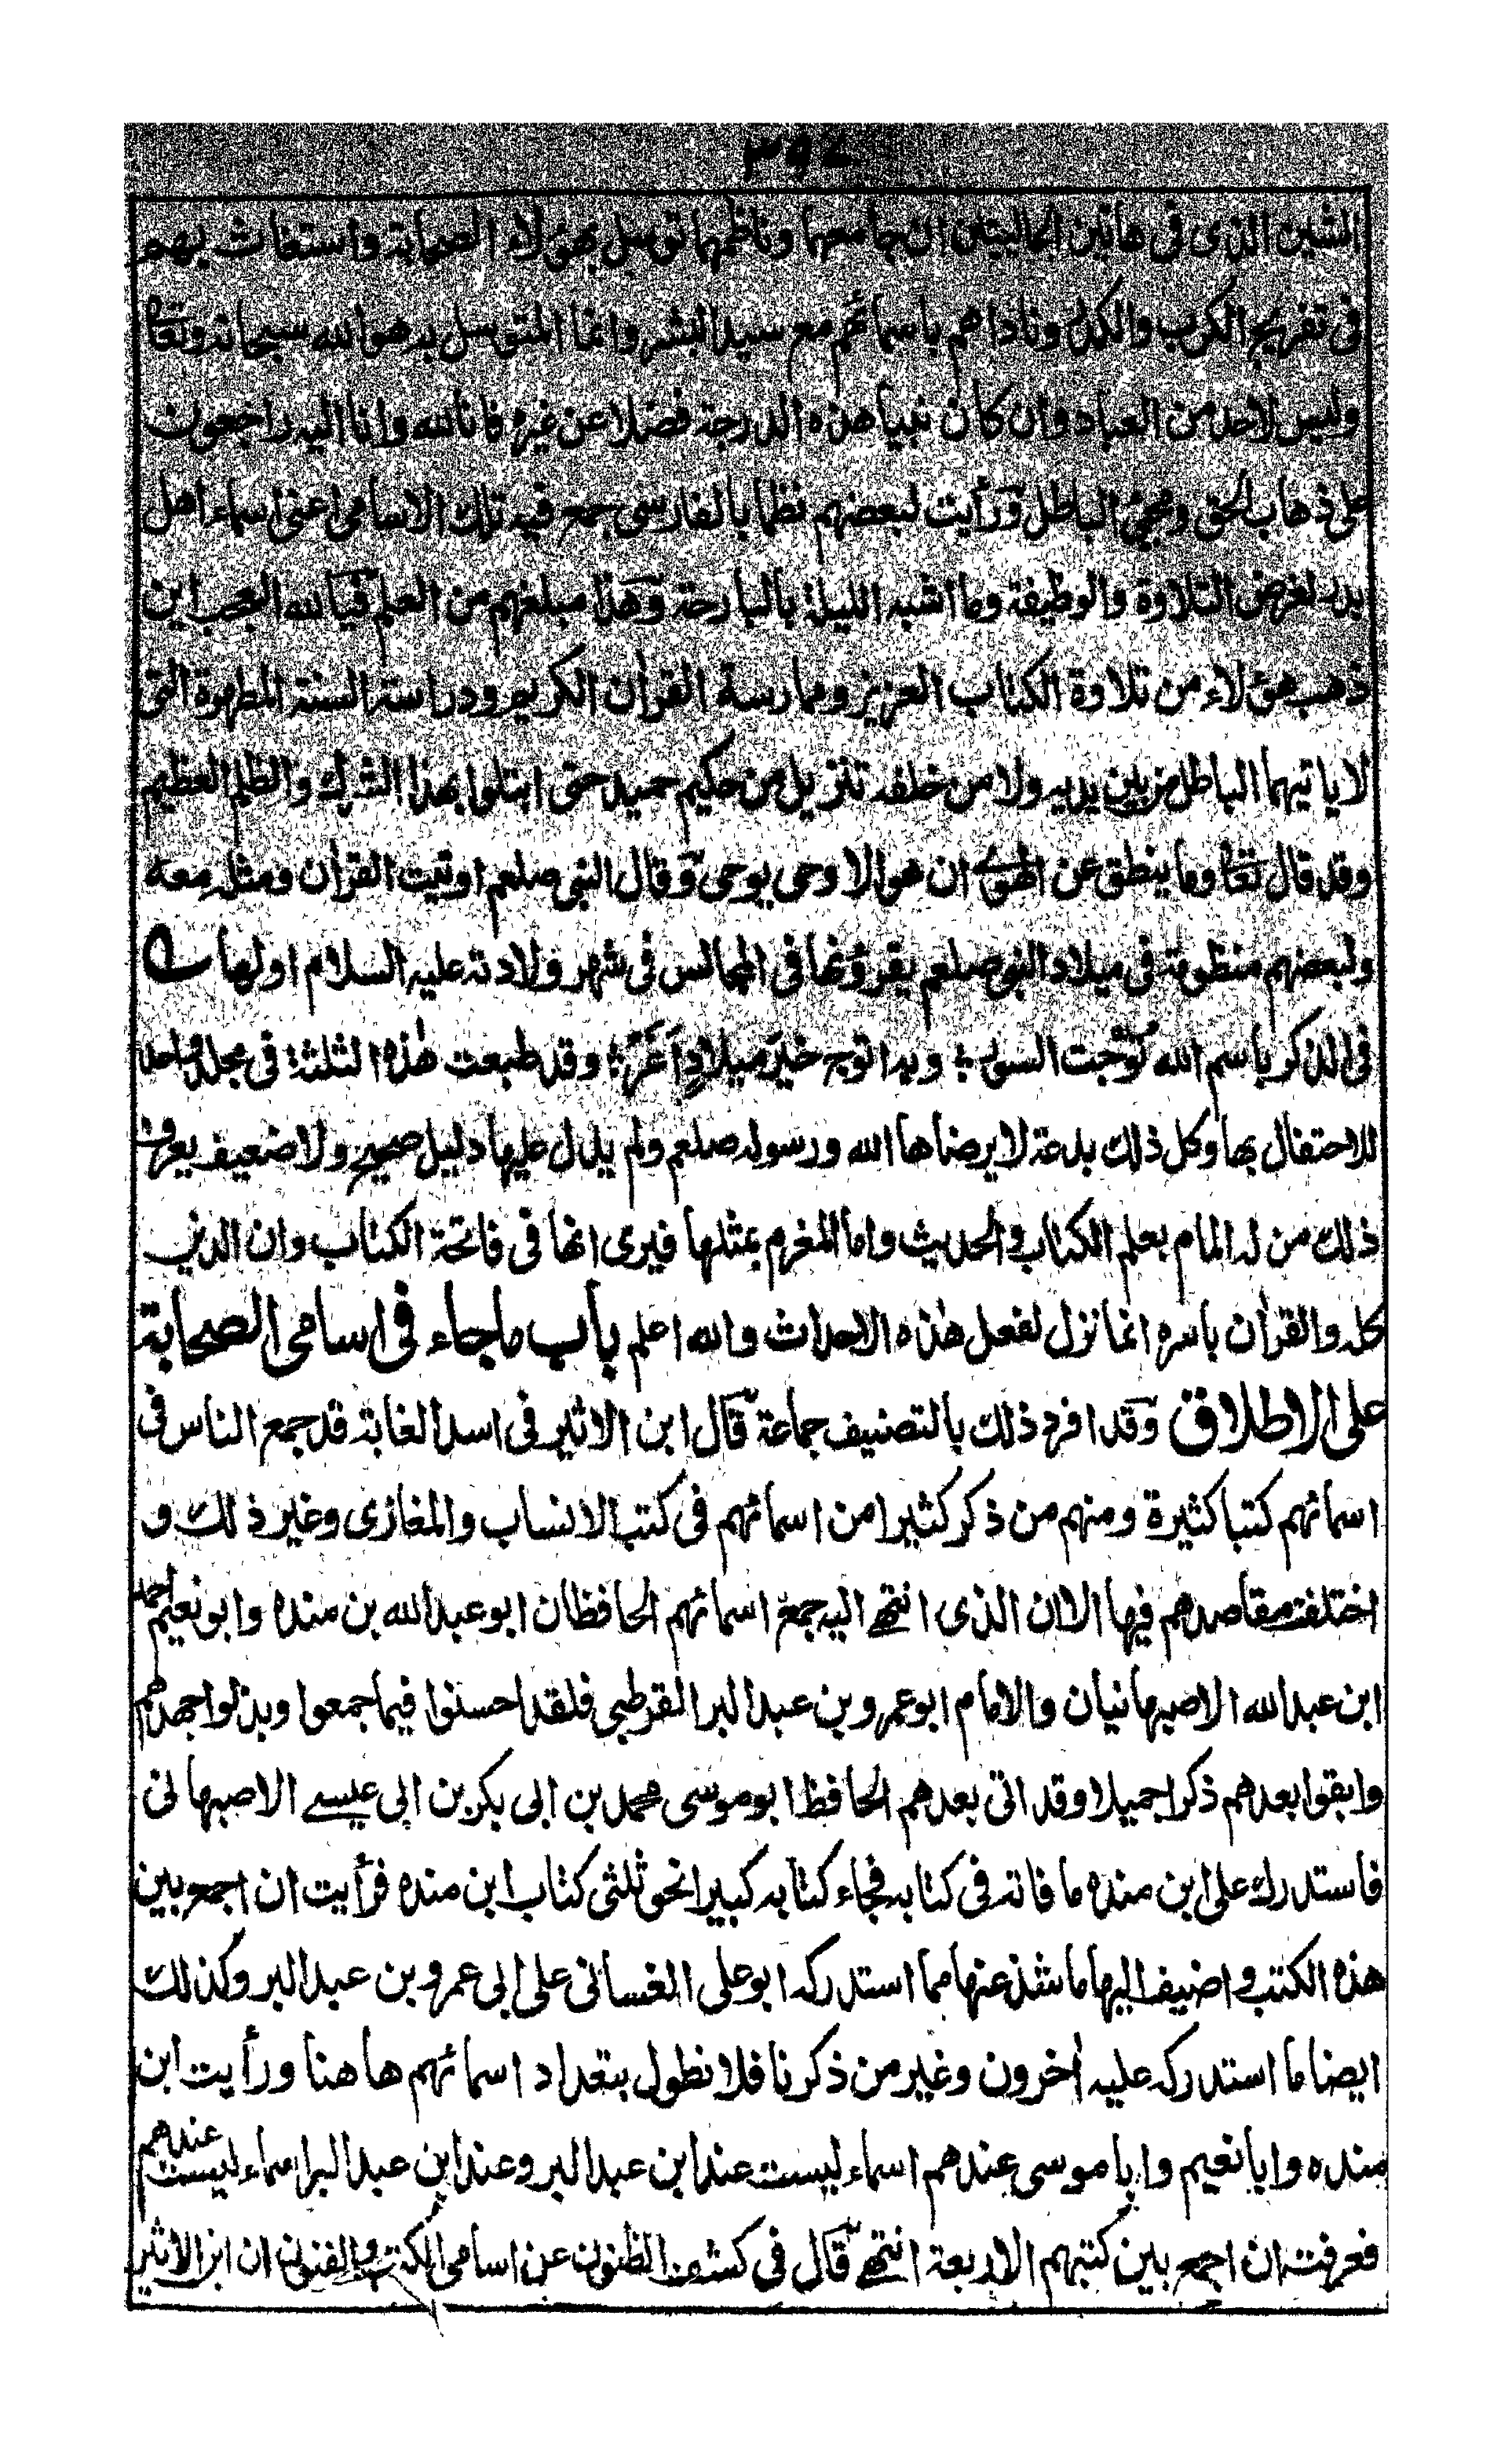 الشين الذى فى هاتين الجاليتين ان جامعهما وناظمهما توسل بهؤلاء الصحابة واستغاث بهم
فى تفريج الكرب والكدر وناداهم باسمائهم مع سيد البشر وانما المتوسل به هو الله سبحانه وتعالى
وليس لاحد من العباد وان كان نبيا هذه الدرجة فضلا عن غيره فانا لله وانا اليه راجعون
على ذهاب الحق ومجئ الباطل ورأيت لبعضهم نظما بالفارسى جمع فيه تلك الاسامى اعنى اسماء اهل
بدر لغرض التلاوة والوظيفة وما اشبه الليلة بالبارحة وهذا مبلغهم من العلم فيا لله العجب اين
ذهب هؤلاء من تلاوة الكتاب العزيز وممارسة القرأن الكريم ودراسة السنة المطهرة التى
لا ياتيهما الباطل من بين يديه ولا من خلفه تنزيل من حكيم حميد حتى ابتلوا بهذا الشرك والظلم العظيم
وقد قال تعالى وما ينطق عن الهوى ان هو الا وحى يوحى وقال النبى صلعم اوتيت القرأن ومثله معه
ولبعضهم منظومة فى ميلاد النبى صلعم يقرؤنها فى المجالس فى شهر ولادته عليه السلام اولها
فى الذكر باسم الله تُوّجت السور ؛ وبدا توجه خيرَ ميلادٍ اَغَرّ ؛ وقد طبعت هذه الثلثة فى مجلد واحد
للاحتفال بها وكل ذلك بدعة لا يرضاها الله ورسوله صلعم ولم يدل عليها دليل صحيح ولا ضعيف يعرف
ذلك من له المام بعلم الكتاب والحديث واما المغرم بمثلها فيرى انها فى فاتحة الكتاب وان الدين
كله والقرأن باسره انما نزل لفعل هذه الاحداث والله اعلم باب ماجاء فى اسامى الصحابة
على الاطلاق وقد افرد ذلك بالتصنيف جماعة قال ابن الاثير فى اسد الغابة قد جمع الناس فى
اسمائهم كتبا كثيرة ومنهم من ذكر كثيرا من اسمائهم فى كتب الانساب والمغازى وغير ذلك و
اختلفت مقاصدهم فيها الا ان الذى انتهى اليه جمع اسمائهم الحافظان ابو عبد الله بن منده وابو نعيم احمد
ابن عبد الله الاصبهانيان والامام ابو عمرو بن عبد البر القرطبى فلقد احسنوا فيما جمعوا وبذلوا جهدهم
وابقوا بعدهم ذكرا جميلا وقد اتى بعدهم الحافظ ابو موسى محمد بن ابى بكر بن ابى عيسى الاصبهانى
فاستدرك على ابن منده ما فاته فى كتابه فجاء كتابه كبيرا نحو ثلثى كتاب ابن منده فرأيت ان اجمع بين
هذه الكتب واضيف اليها ما شذ عنها مما استدركه ابو على الغسانى على ابى عمرو بن عبد البر وكذلك
ايضا ما استدركه عليه أخرون وغير من ذكرنا فلا نطول بتعداد اسمائهم هاهنا ورأيت ابن
منده وابا نعيم وابا موسى عندهم اسماء ليست عند ابن عبد البر وعند ابن عبد البر اسماء ليست عندهم
فعرفت ان اجمع بين كتبهم الاربعة انتهى قال فى كشف الظنون عن اسامى الكتب والفنون ان ابن الاثير